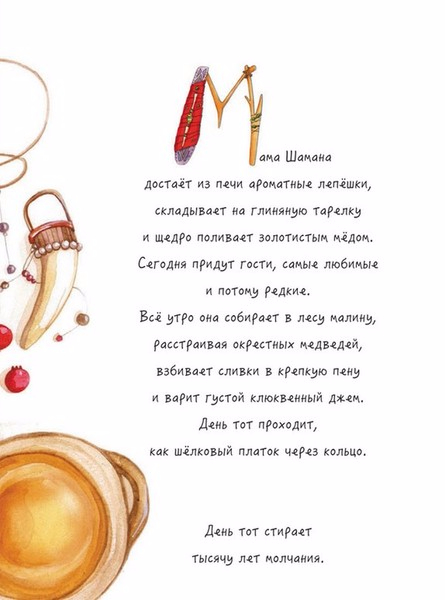 Мама Шамана
достаёт из печи ароматные лепёшки,
складывает на глиняную тарелку
и щедро поливает золотистым мёдом.
Сегодня придут гости, самые любимые
и потому редкие.
Всё утро она собирает в лесу малину,
расстраивая окрестных медведей,
взбивает сливки в крепкую пену
и варит густой клюквенный джем.
День тот проходит,
как шёлковый платок через кольцо.
День тот стирает
тысячу лет молчания.